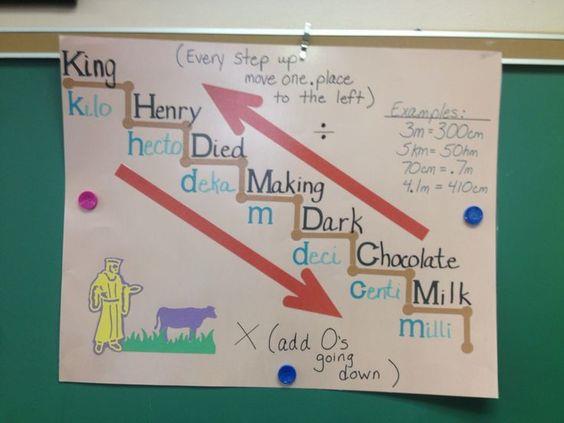 King
kilo
Henry
hecto
Died
deka
Making
m
Dark
deci
Chocolate
centi
Milk
milli
(Every step up
move one place
to the left)
÷
Examples:
3m = 300cm
5km = 50hm
70cm = .7m
4.1m = 410cm
X (add 0's
going
down)